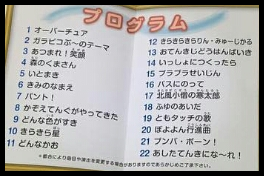 プログラム
1 オーバーチュア
2 ガラピコぷ～のテーマ
3 あつまれ！笑顔
4 森のくまさん
5 いとまき
6 きみのなまえ
7 パント！
8 かぞえてんぐがやってきた
9 どんな色がすき
10 きらきら星
11 どんなかお
12 きらきらきらりん・みゅーじかる
13 おてんきじどうはんばいき
14 いっしょにつくったら
15 ブラブラせいじん
16 バスにのって
17 北風小僧の寒太郎
18 ふゆのあいだ
19 ともタッチの歌
20 ぼよよん行進曲
21 ブンバ・ボーン！
22 あしたてんきになーれ！
＊都合により曲目や演出を変更する場合がありますのであらかじめご了承下さい。